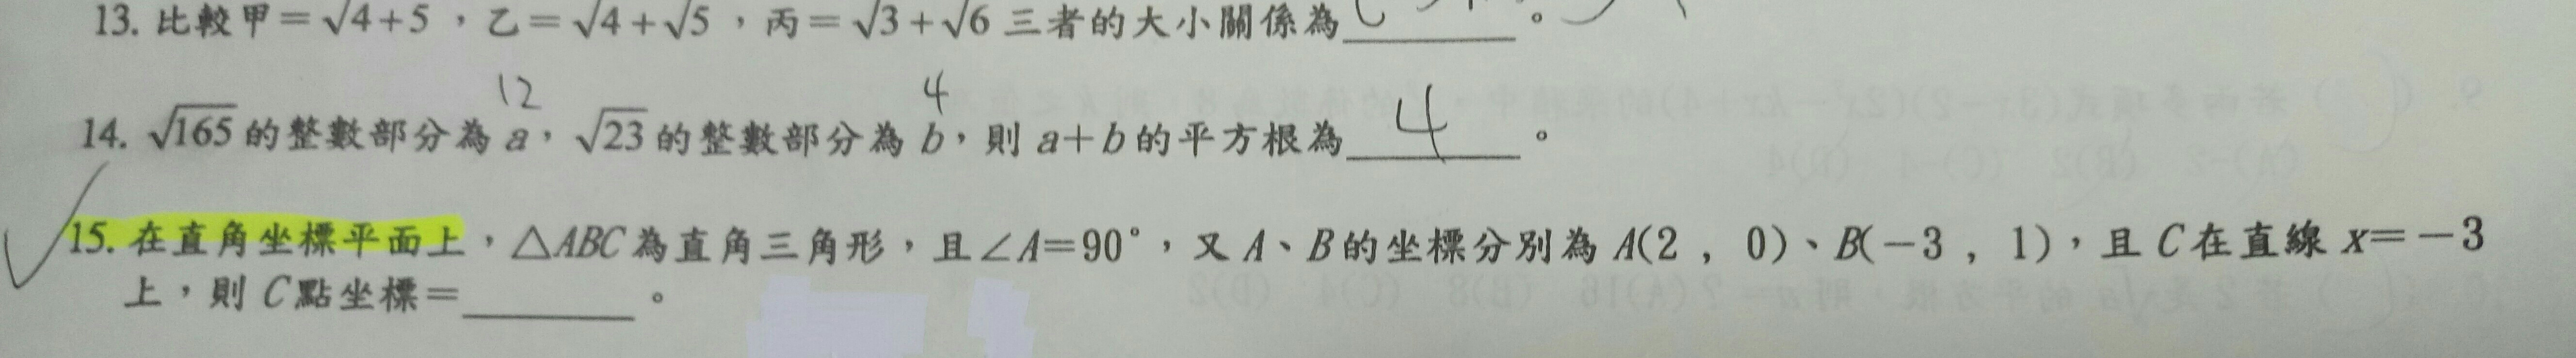 13. 比較甲＝√4+5，乙＝√4+√5，丙＝√3+√6 三者的大小關係為______。
12 4
14. √165 的整數部分為 a，√23 的整數部分為 b，則 a+b 的平方根為 4 。
15. 在直角坐標平面上，△ABC 為直角三角形，且∠A＝90°，又 A、B 的坐標分別為 A(2，0)、B(－3，1)，且 C 在直線 x＝－3
上，則 C 點坐標＝______。